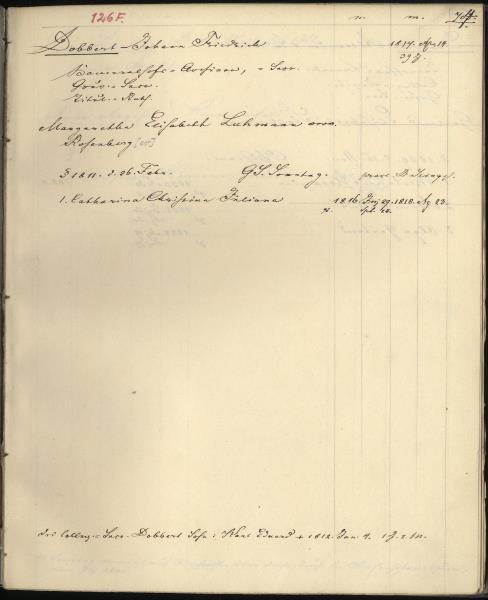 126 F.
Dobbert - Johann Friedrich 1817. Apr. 14.
39 J.
Kameralhofs - Archivar, - Secr.
Gouv. - Secr.
Titul. - Rath.
Margaretha Elisabeth Luhmann
Rosenberg
1811. d. 26. Febr. G.S. Sonntag.
1. Catharina Christina Juliana 1816. 29. 1818. Ag. 23.
Spt. 24.
Colleg. - Secr. Dobbert Sohn: Karl Eduard + 1812. Jan. 4. 1 J. 2. M.